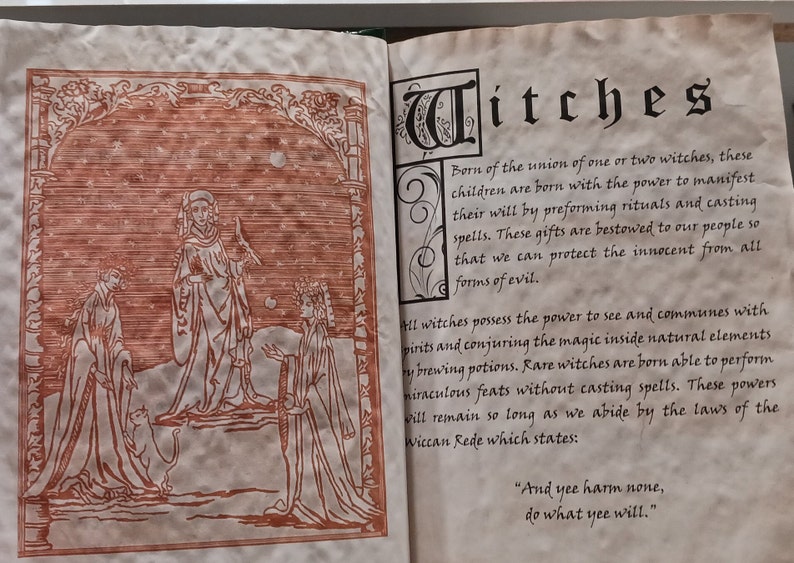 Witches
Born of the union of one or two witches, these
children are born with the power to manifest
their will by preforming rituals and casting
spells. These gifts are bestowed to our people so
that we can protect the innocent from all
forms of evil.
All witches possess the power to see and communes with
spirits and conjuring the magic inside natural elements
by brewing potions. Rare witches are born able to perform
miraculous feats without casting spells. These powers
will remain so long as we abide by the laws of the
Wiccan Rede which states:
"And yee harm none,
do what yee will."